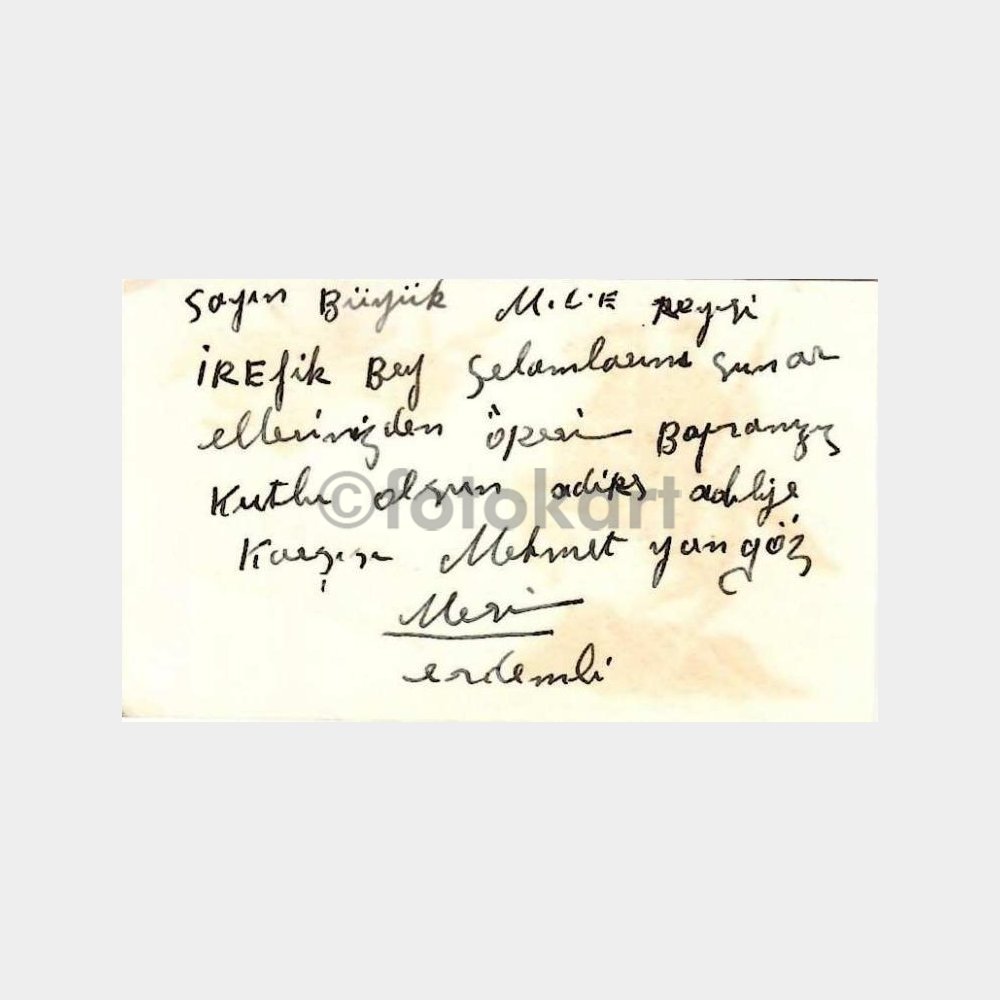 Sayın Büyük M.L.E reyisi
İREfik Bey Selamlarımı sunar
ellerinizden öperim Bayramınız
Kutlu olsun adires adliye
Karşısı Mehmet yangöz
Mersin
erdemli
©fotokart